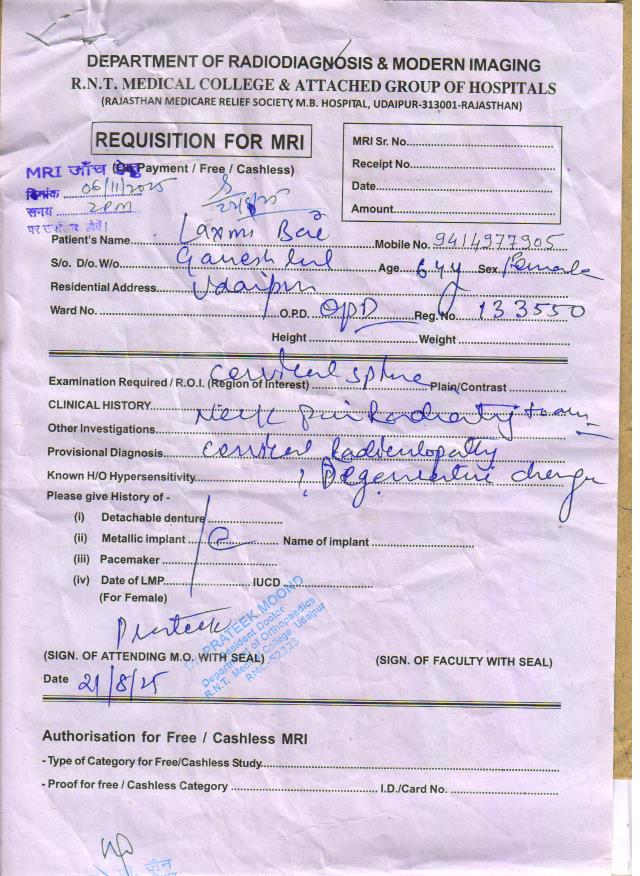 DEPARTMENT OF RADIODIAGNOSIS & MODERN IMAGING
R.N.T. MEDICAL COLLEGE & ATTACHED GROUP OF HOSPITALS
(RAJASTHAN MEDICARE RELIEF SOCIETY, M.B. HOSPITAL, UDAIPUR-313001-RAJASTHAN)
REQUISITION FOR MRI
Payment / Free / Cashless)
MRI जाँच हेतु
दिनांक 06/11/2025
समय 2PM
MRI Sr. No.
Receipt No.
Date
Amount
Patient's Name Laxmi Bai Mobile No. 9414977905
S/o. D/o. W/o Ganesh lal Age 64y Sex Female
Residential Address Udaipur
Ward No. O.P.D. OPD Reg. No 133550
Height Weight
Examination Required / R.O.I. (Region of Interest) Cervical spine Plain/Contrast
CLINICAL HISTORY Neck pain radiating to arm
Other Investigations
Provisional Diagnosis Cervical Radiculopathy
Known H/O Hypersensitivity ? Degenerative change
Please give History of -
(i) Detachable denture
(ii) Metallic implant Name of implant
(iii) Pacemaker
(iv) Date of LMP IUCD
(For Female)
Prateek
DR. PRATEEK MOOND
Resident Doctor
Department of Orthopaedics
R.N.T. Medical College, Udaipur
RMC-52323
(SIGN. OF ATTENDING M.O. WITH SEAL) (SIGN. OF FACULTY WITH SEAL)
Date 21/8/25
Authorisation for Free / Cashless MRI
- Type of Category for Free/Cashless Study
- Proof for free / Cashless Category I.D./Card No.
जैन